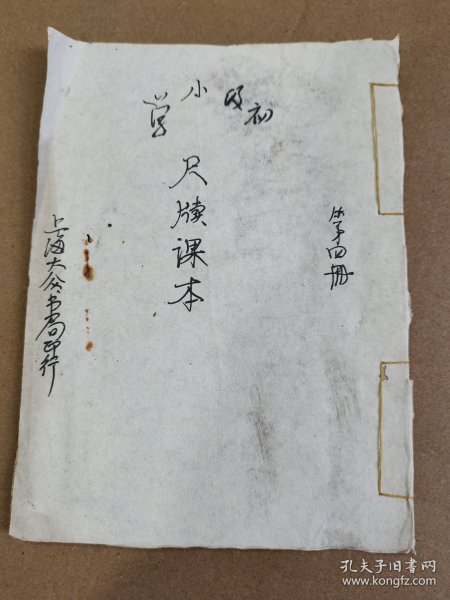 初级小学
尺牍课本
第四册
上海大众书局印行
孔夫子旧书网
www.kongfz.com